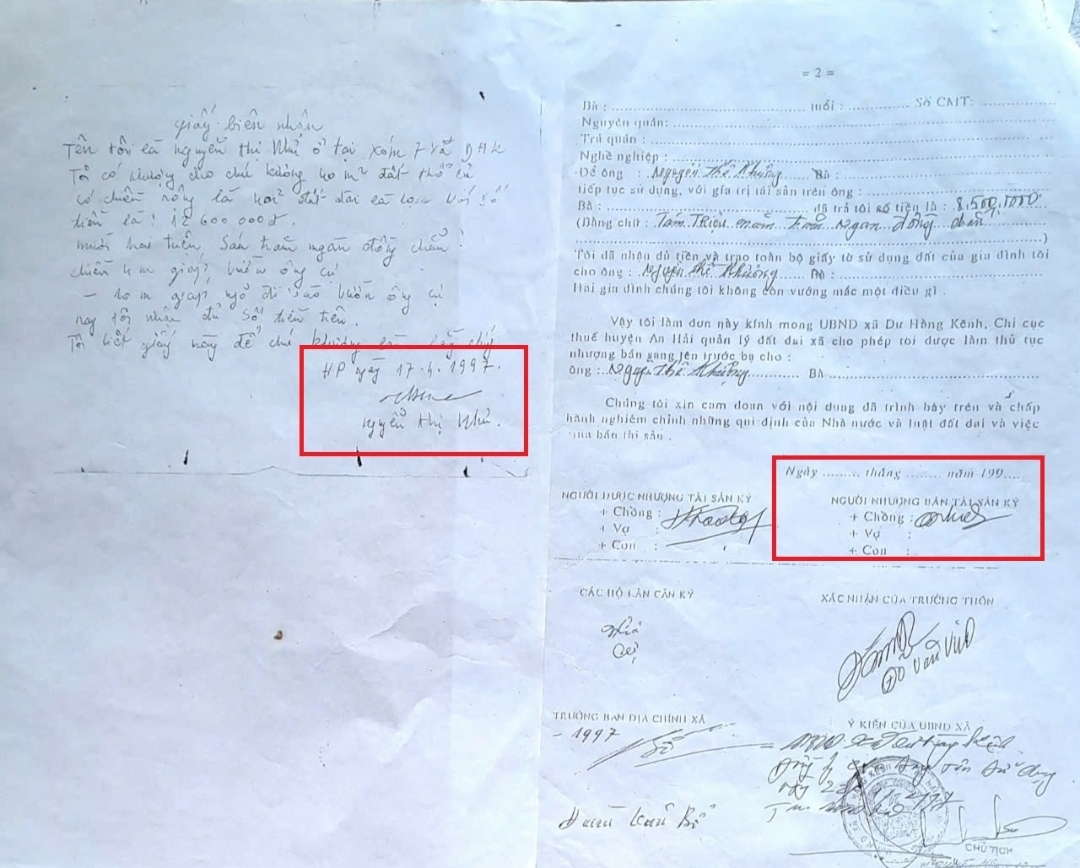 giấy biên nhận
Tên tôi là nguyễn thị Nhủ ở tại xóm 7 xã DHK
Tôi có nhượng cho chú Khường 40 m² đất thổ cư
có chiều rộng là 4m dài là 10m với số
tiền là: 12600000đ
mười hai triệu sáu trăm ngàn đồng chẵn
chiều 4m giáp vườn ông cụ
- 10m giáp ngõ đi vào vườn ông cụ
nay tôi nhận đủ số tiền trên.
Tôi viết giấy này để chú Khường
HP ngày 17.4.1997.
nguyễn thị Nhủ.
= 2 =
Bà : tuổi : Số CMT:
Nguyên quán:
Trú quán :
Nghề nghiệp :
Để ông : Nguyễn Thế Khường Bà :
tiếp tục sử dụng, với giá trị tài sản trên ông :
Bà : đã trả tôi số tiền là : 8,500,000đ
(Bằng chữ : Tám Triệu năm Trăm Ngàn đồng chẵn
)
Tôi đã nhận đủ tiền và trao toàn bộ giấy tờ sử dụng đất của gia đình tôi
cho ông : Nguyễn Thế Khường Bà :
Hai gia đình chúng tôi không còn vướng mắc một điều gì .
Vậy tôi làm đơn này kính mong UBND xã Dư Hàng Kênh, Chi cục
thuế huyện An Hải quản lý đất đai xã cho phép tôi được làm thủ tục
nhượng bán sang tên trước bạ cho :
ông : Nguyễn Thế Khường Bà
Chúng tôi xin cam đoan với nội dung đã trình bày trên và chấp
hành nghiêm chỉnh những qui định của Nhà nước và luật đất đai và việc
mua bán tài sản .
Ngày ......... tháng ......... năm 199.....
NGƯỜI ĐƯỢC NHƯỢNG TÀI SẢN KÝ
+ Chồng :
+ Vợ :
+ Con :
NGƯỜI NHƯỢNG BÁN TÀI SẢN KÝ
+ Chồng :
+ Vợ :
+ Con :
CÁC HỘ LÂN CẬN KÝ
XÁC NHẬN CỦA TRƯỞNG THÔN
Đỗ Văn
TRƯỞNG BAN ĐỊA CHÍNH XÃ
- 1997
Ý KIẾN CỦA UBND XÃ
CHỦ TỊCH